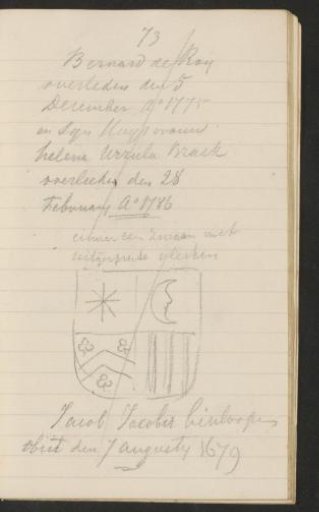 73
Bernard de Roy
overleden den 5
December Aº 1775
en Syn Huysvrouw
helena Urzula Braek
overleeden den 28
Februarij Aº 1786
een met
vlerken
Jacob Jacobsz binloopen
obiit den 7 augusty 1679